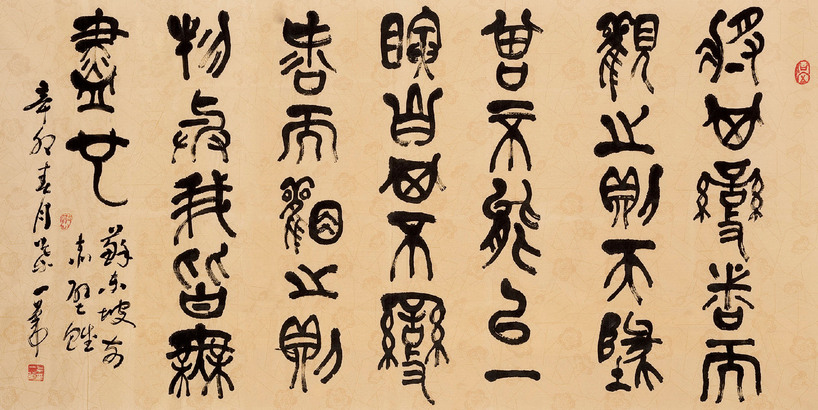 將其變者而
觀之則天地
曾不能以一
瞬自其不變
者而觀之則
物與我皆無
盡也
蘇東坡前
赤壁賦
辛卯春月